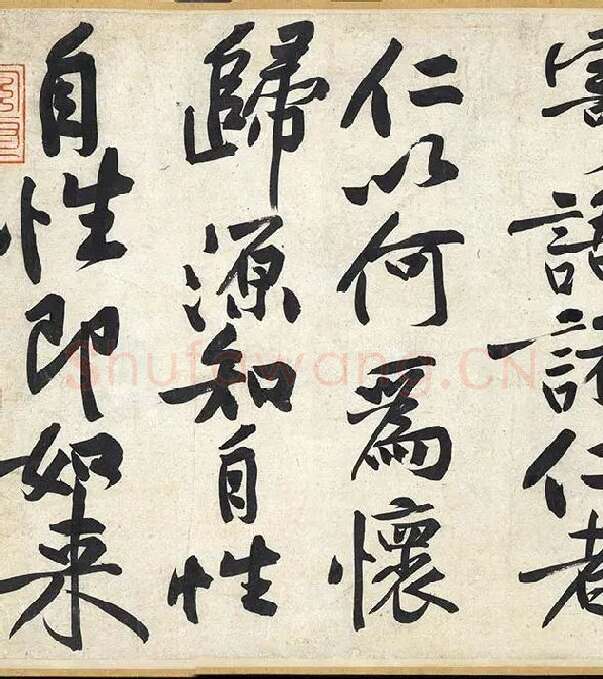 寄語諸仁者
仁以何為懷
歸源知自性
自性即如来
Shufawang.CN